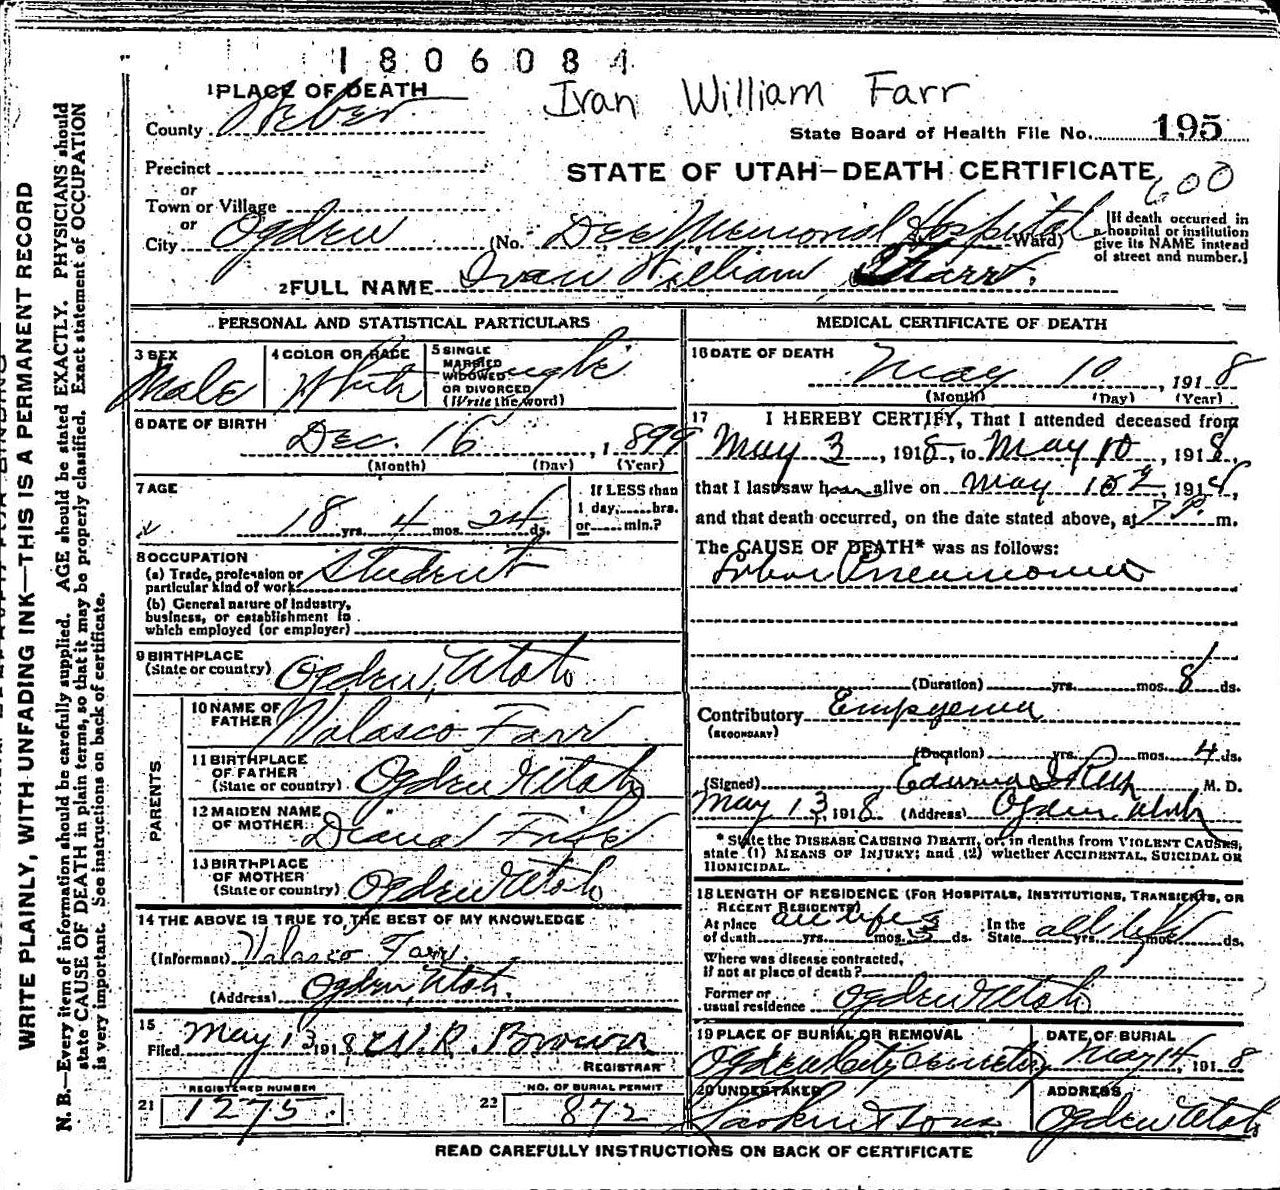 1806084
Ivan William Farr
1 PLACE OF DEATH
County Weber
State Board of Health File No. 195
Precinct
STATE OF UTAH—DEATH CERTIFICATE
600
or
Town or Village
or
City Ogden (No. Dee Memorial Hospital St. Ward)
[If death occurred in
a hospital or institution
give its NAME instead
of street and number.]
2 FULL NAME Ivan William Farr.
PERSONAL AND STATISTICAL PARTICULARS
3 SEX Male
4 COLOR OR RACE White
5 SINGLE
MARRIED
WIDOWED
OR DIVORCED
(Write the word)
Single
6 DATE OF BIRTH
Dec. 16, 1899
(Month) (Day) (Year)
7 AGE
18 yrs. 4 mos. 24 ds.
If LESS than
1 day, hrs.
or min.?
8 OCCUPATION
(a) Trade, profession or
particular kind of work Student
(b) General nature of industry,
business, or establishment in
which employed (or employer)
9 BIRTHPLACE
(State or country) Ogden, Utah
PARENTS
10 NAME OF
FATHER Valasco Farr
11 BIRTHPLACE
OF FATHER
(State or country) Ogden Utah
12 MAIDEN NAME
OF MOTHER Diana Fife
13 BIRTHPLACE
OF MOTHER
(State or country) Ogden Utah
14 THE ABOVE IS TRUE TO THE BEST OF MY KNOWLEDGE
(Informant) Valasco Farr
(Address) Ogden, Utah.
15
Filed May 13 1918 W.R. Brown
REGISTRAR
REGISTERED NUMBER
21 1275
NO. OF BURIAL PERMIT
22 872
MEDICAL CERTIFICATE OF DEATH
16 DATE OF DEATH
May 10, 1918
(Month) (Day) (Year)
17 I HEREBY CERTIFY, That I attended deceased from
May 3, 1918, to May 10, 1918,
that I last saw alive on May 1918,
and that death occurred, on the date stated above, at 7 P. m.
The CAUSE OF DEATH* was as follows:
Lobar Pneumonia
(Duration) yrs. mos. 8 ds.
Contributory Empyema
(SECONDARY)
(Duration) yrs. mos. 4 ds.
(Signed) M. D.
May 13, 1918 (Address) Ogden Utah
* State the DISEASE CAUSING DEATH, or, in deaths from VIOLENT CAUSES,
state (1) MEANS OF INJURY; and (2) whether ACCIDENTAL, SUICIDAL OR
HOMICIDAL.
18 LENGTH OF RESIDENCE (FOR HOSPITALS, INSTITUTIONS, TRANSIENTS, OR
RECENT RESIDENTS)
At place all life In the
of death yrs. mos. ds. State all life yrs. mos. ds.
Where was disease contracted,
if not at place of death?
Former or
usual residence Ogden Utah
19 PLACE OF BURIAL OR REMOVAL
Ogden City Cemetery
DATE OF BURIAL
May 14, 1918
20 UNDERTAKER
Larkin & Sons
ADDRESS
Ogden Utah
READ CAREFULLY INSTRUCTIONS ON BACK OF CERTIFICATE
WRITE PLAINLY, WITH UNFADING INK—THIS IS A PERMANENT RECORD
N. B.—Every item of information should be carefully supplied. AGE should be stated EXACTLY. PHYSICIANS should
state CAUSE OF DEATH in plain terms, so that it may be properly classified. Exact statement of OCCUPATION
is very important. See instructions on back of certificate.